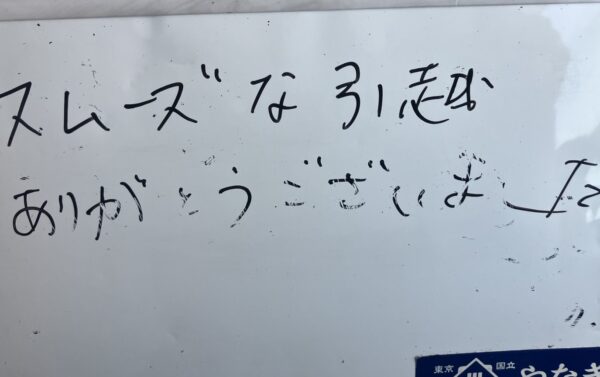 スムーズな引越
ありがとうございました
東京 国立